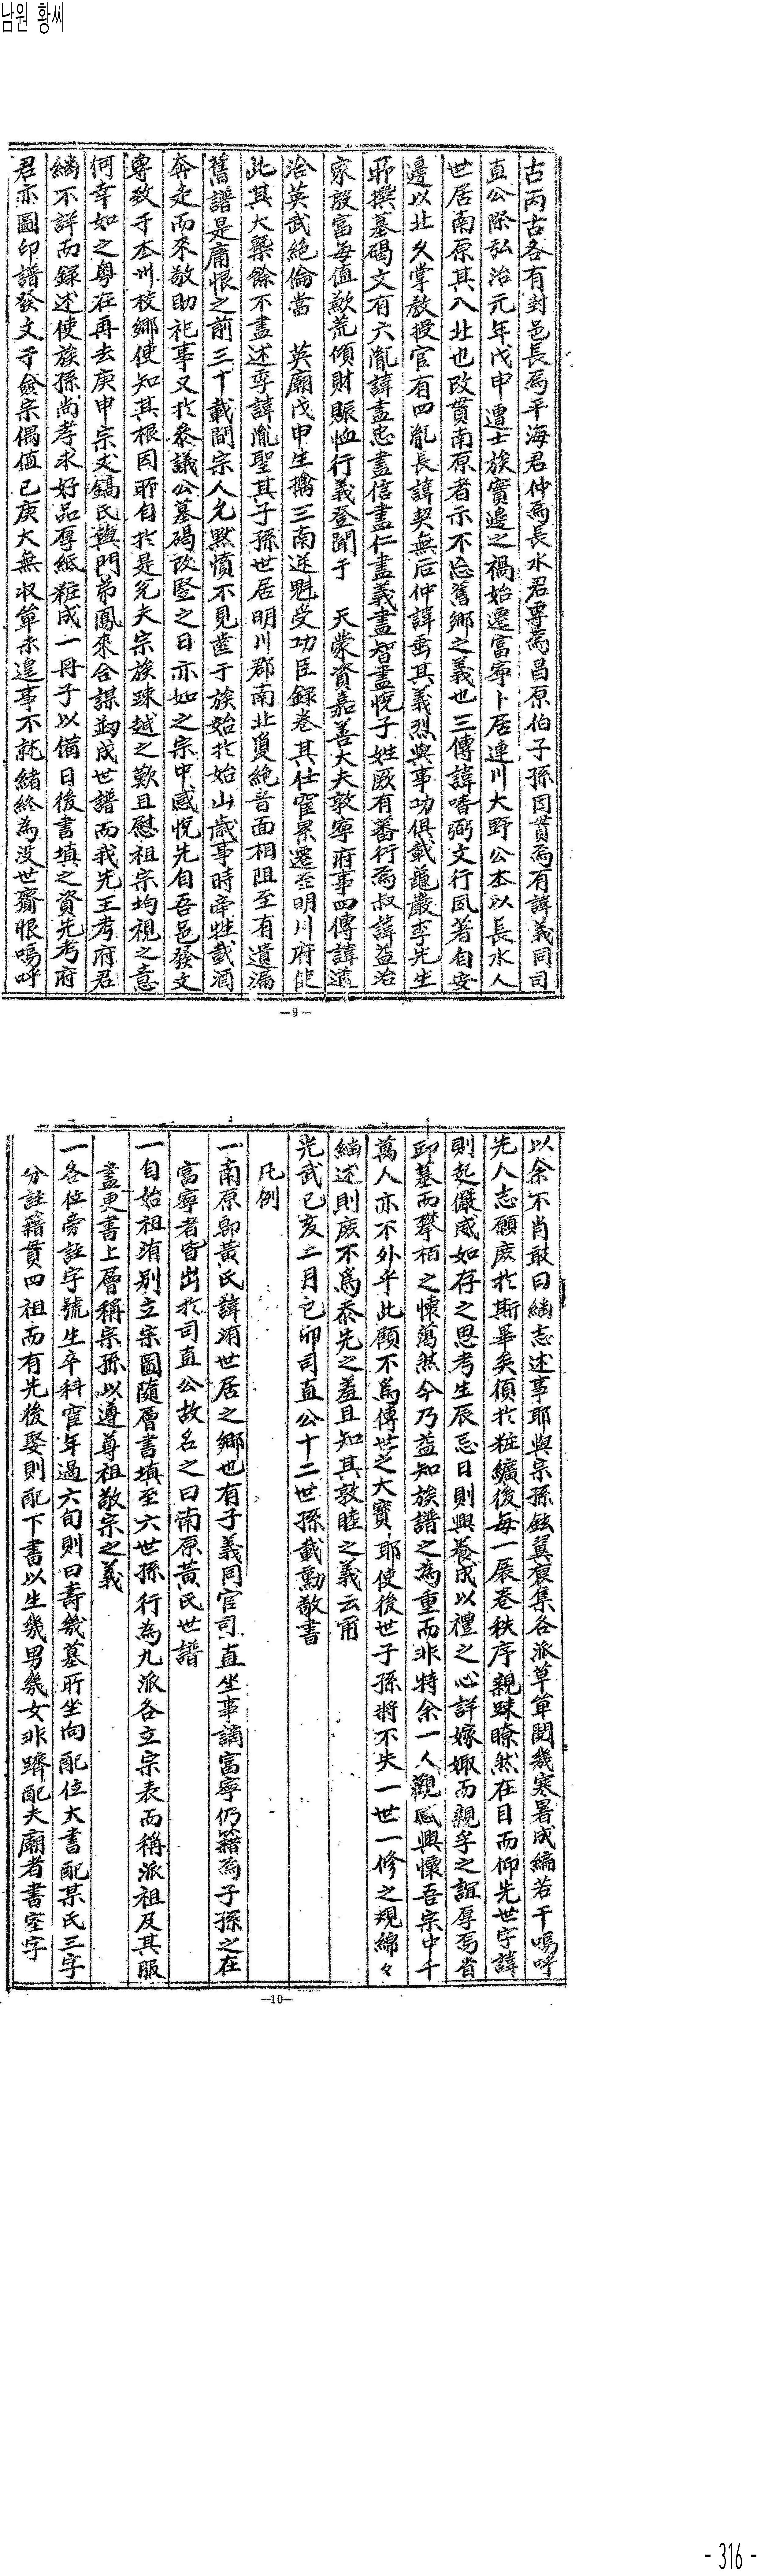 남원 황씨
古丙古各有封邑長爲平海君仲爲長水君季爲昌原伯子孫因貫焉有諱義同司
直公際弘治元年戊申遭士族實邊之禍始遷富寧卜居連川大野公本以長水人
世居南原其入北也改貫南原者示不忘舊鄕之義也三傳諱嗜弼文行夙著自安
邊以北久掌敎授官有四胤長諱契無后仲諱壽其義烈與事功俱載龜巖李先生
所撰墓碣文有六胤諱盡忠盡信盡仁盡義盡智盡悅子姓厥有蕃行爲叔諱益治
家殷富每值歉荒傾財賑恤行義登聞于 天蒙資嘉善大夫敦寧府事四傳諱道
洽英武絶倫當 英廟戊申生擒三南逆魁受功臣錄卷其仕宦累遷至明川府使
此其大槩餘不盡述季諱胤聖其子孫世居明川郡南北夐絶音面相阻至有遺漏
舊譜是庸恨之前三十載間宗人允黙憤不見齒于族始於始山歲事時牽牲載酒
奔走而來敬助祀事又於參議公墓碣改竪之日亦如之宗中感悅先自吾邑發文
專致于本州校鄕使知其根因所自於是允夫宗族踈越之歎且慰祖宗均視之意
何幸如之粤在再去庚申宗丈鎬氏與門弟鳳來合謀刱成世譜而我先王考府君
緬不詳而錄述使族孫尚孝求好品厚紙粧成一冊子以備日後書填之資先考府
君亦圖印譜發文于僉宗偶值己庚大無収單未遑事不就緖終為没世齎恨嗚呼
-9-
以余不肖敢曰緬志述事耶與宗孫鉉翼裒集各派草單閱幾寒暑成編若干嗚呼
先人志願庶於斯畢矣須於粧䌙後每一展卷秩序親踈瞭然在目而仰先世字諱
則起儼威如存之思考生辰忌日則興養成以禮之心詳嫁娵而親孚之誼厚焉省
邱墓而攀栢之懷藹然今乃益知族譜之為重而非特余一人觀感興懷吾宗中千
萬人亦不外乎此顧不爲傳世之大寶耶使後世子孫將不失一世一修之規綿々
緬述則庶不爲忝先之羞且知其敦睦之義云甯
光武己亥二月己卯司直公十二世孫載勳敬書
凡例
一南原郞黃氏諱洧世居之鄕也有子義同官司直坐事謫富寧仍籍焉子孫之在
富寧者皆出於司直公故名之曰南原黃氏世譜
一自始祖洧別立宗圖隨層書填至六世孫行為九派各立宗表而稱派祖及其服
盡更書上層稱宗孫以遵尊祖敬宗之義
一各位旁註字號生卒科宦年過六旬則曰壽幾墓所坐向配位大書配某氏三字
分註籍貫四祖而有先後娶則配下書以生幾男幾女非躋配夫廟者書室字
-10-
- 316 -